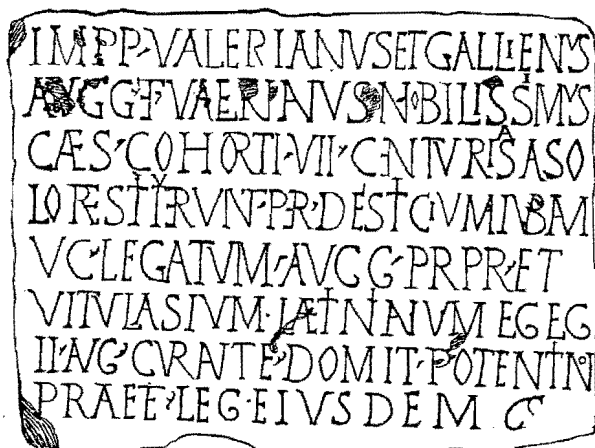 IMPP·VALERIANVS ET GALLIENVS
AVGG·ET VALERIANVS·NOBILISSIMVS
CAES·COHORTI·VII·CENTVRIAS A SO
LO RESTITVERVNT·PER·DESTICIVM IVBAM
VC·LEGATVM·AVGG·PRPR·ET
VITVLASIVM·LAETINIANVM LEG LEG
II·AVG·CVRANTE·DOMIT·POTENTINO
PRAEF·LEG·EIVSDEM